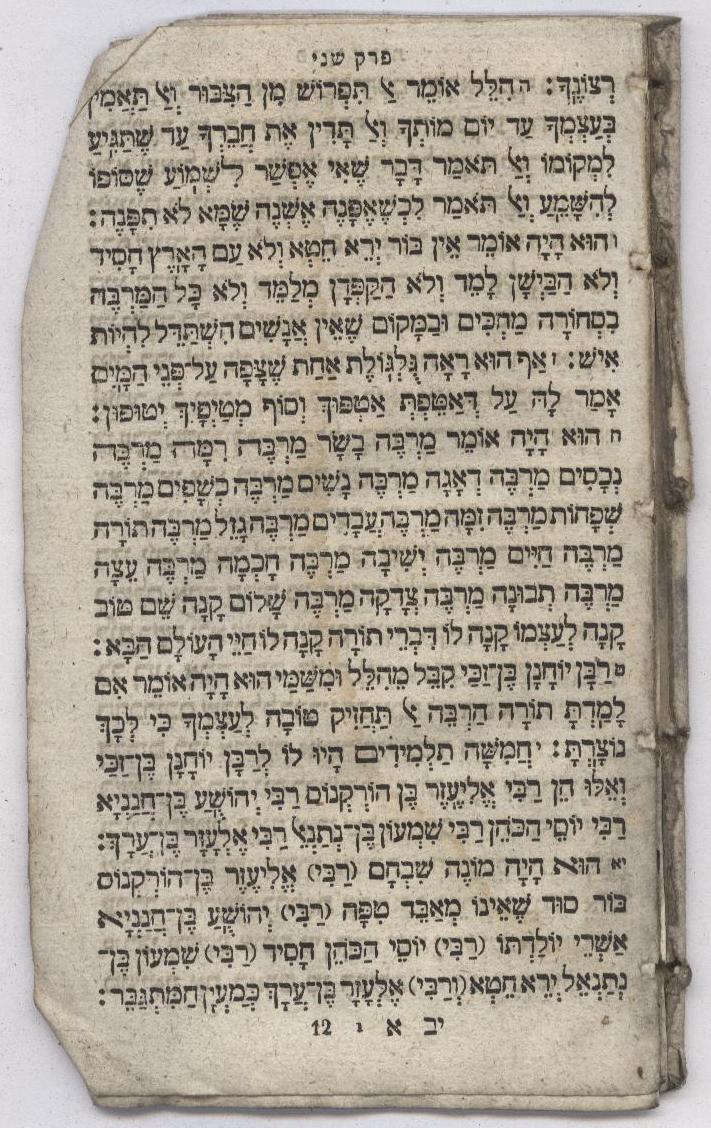 פרק שני
רְצוֹנֶךָ: ה הִלֵּל אוֹמֵר אַל תִּפְרוֹשׁ מִן הַצִּבּוּר וְאַל תַּאֲמִין
בְּעַצְמְךָ עַד יוֹם מוֹתְךָ וְאַל תָּדִין אֶת חֲבֵרְךָ עַד שֶׁתַּגִּיעַ
לִמְקוֹמוֹ וְאַל תֹּאמַר דָּבָר שֶׁאִי אֶפְשַׁר לִשְׁמוֹעַ שֶׁסּוֹפוֹ
לְהִשָּׁמֵעַ וְאַל תֹּאמַר לִכְשֶׁאֶפָּנֶה אֶשְׁנֶה שֶׁמָּא לֹא תִפָּנֶה:
ו הוּא הָיָה אוֹמֵר אֵין בּוּר יְרֵא חֵטְא וְלֹא עַם הָאָרֶץ חָסִיד
וְלֹא הַבַּיְשָׁן לָמֵד וְלֹא הַקַּפְּדָן מְלַמֵּד וְלֹא כָּל הַמַּרְבֶּה
בִסְחוֹרָה מַחְכִּים וּבִמְקוֹם שֶׁאֵין אֲנָשִׁים הִשְׁתַּדֵּל לִהְיוֹת
אִישׁ: ז אַף הוּא רָאָה גֻּלְגּוֹלֶת אַחַת שֶׁצָּפָה עַל־פְּנֵי הַמָּיִם
אָמַר לָהּ עַל דְּאַטֵּפְתְּ אַטְפוּךְ וְסוֹף מְטַיְפָיִךְ יְטוּפוּן:
ח הוּא הָיָה אוֹמֵר מַרְבֶּה בָשָׂר מַרְבֶּה רִמָּה מַרְבֶּה
נְכָסִים מַרְבֶּה דְאָגָה מַרְבֶּה נָשִׁים מַרְבֶּה כְשָׁפִים מַרְבֶּה
שְׁפָחוֹת מַרְבֶּה זִמָּה מַרְבֶּה עֲבָדִים מַרְבֶּה גָזֵל מַרְבֶּה תוֹרָה
מַרְבֶּה חַיִּים מַרְבֶּה יְשִׁיבָה מַרְבֶּה חָכְמָה מַרְבֶּה עֵצָה
מַרְבֶּה תְבוּנָה מַרְבֶּה צְדָקָה מַרְבֶּה שָׁלוֹם קָנָה שֵׁם טוֹב
קָנָה לְעַצְמוֹ קָנָה לוֹ דִּבְרֵי תוֹרָה קָנָה לוֹ חַיֵּי הָעוֹלָם הַבָּא:
ט רַבָּן יוֹחָנָן בֶּן־זַכַּי קִבֵּל מֵהִלֵּל וּמִשַּׁמַּי הוּא הָיָה אוֹמֵר אִם
לָמַדְתָּ תּוֹרָה הַרְבֵּה אַל תַּחֲזִיק טוֹבָה לְעַצְמְךָ כִּי לְכָךְ
נוֹצָרְתָּ: י חֲמִשָּׁה תַלְמִידִים הָיוּ לוֹ לְרַבָּן יוֹחָנָן בֶּן־זַכַּי
וְאֵלּוּ הֵן רַבִּי אֱלִיעֶזֶר בֶּן הוֹרְקְנוֹס רַבִּי יְהוֹשֻׁעַ בֶּן־חֲנַנְיָא
רַבִּי יוֹסֵי הַכֹּהֵן רַבִּי שִׁמְעוֹן בֶּן־נְתַנְאֵל רַבִּי אֶלְעָזָר בֶּן־עֲרָךְ:
יא הוּא הָיָה מוֹנֶה שִׁבְחָם (רַבִּי) אֱלִיעֶזֶר בֶּן־הוֹרְקְנוֹס
בּוֹר סוּד שֶׁאֵינוֹ מְאַבֵּד טִפָּה (רַבִּי) יְהוֹשֻׁעַ בֶּן־חֲנַנְיָא
אַשְׁרֵי יוֹלַדְתּוֹ (רַבִּי) יוֹסֵי הַכֹּהֵן חָסִיד (רַבִּי) שִׁמְעוֹן בֶּן־
נְתַנְאֵל יְרֵא חֵטְא (וְרַבִּי) אֶלְעָזָר בֶּן־עֲרָךְ כְּמַעְיָן הַמִּתְגַּבֵּר:
יב א 1 12